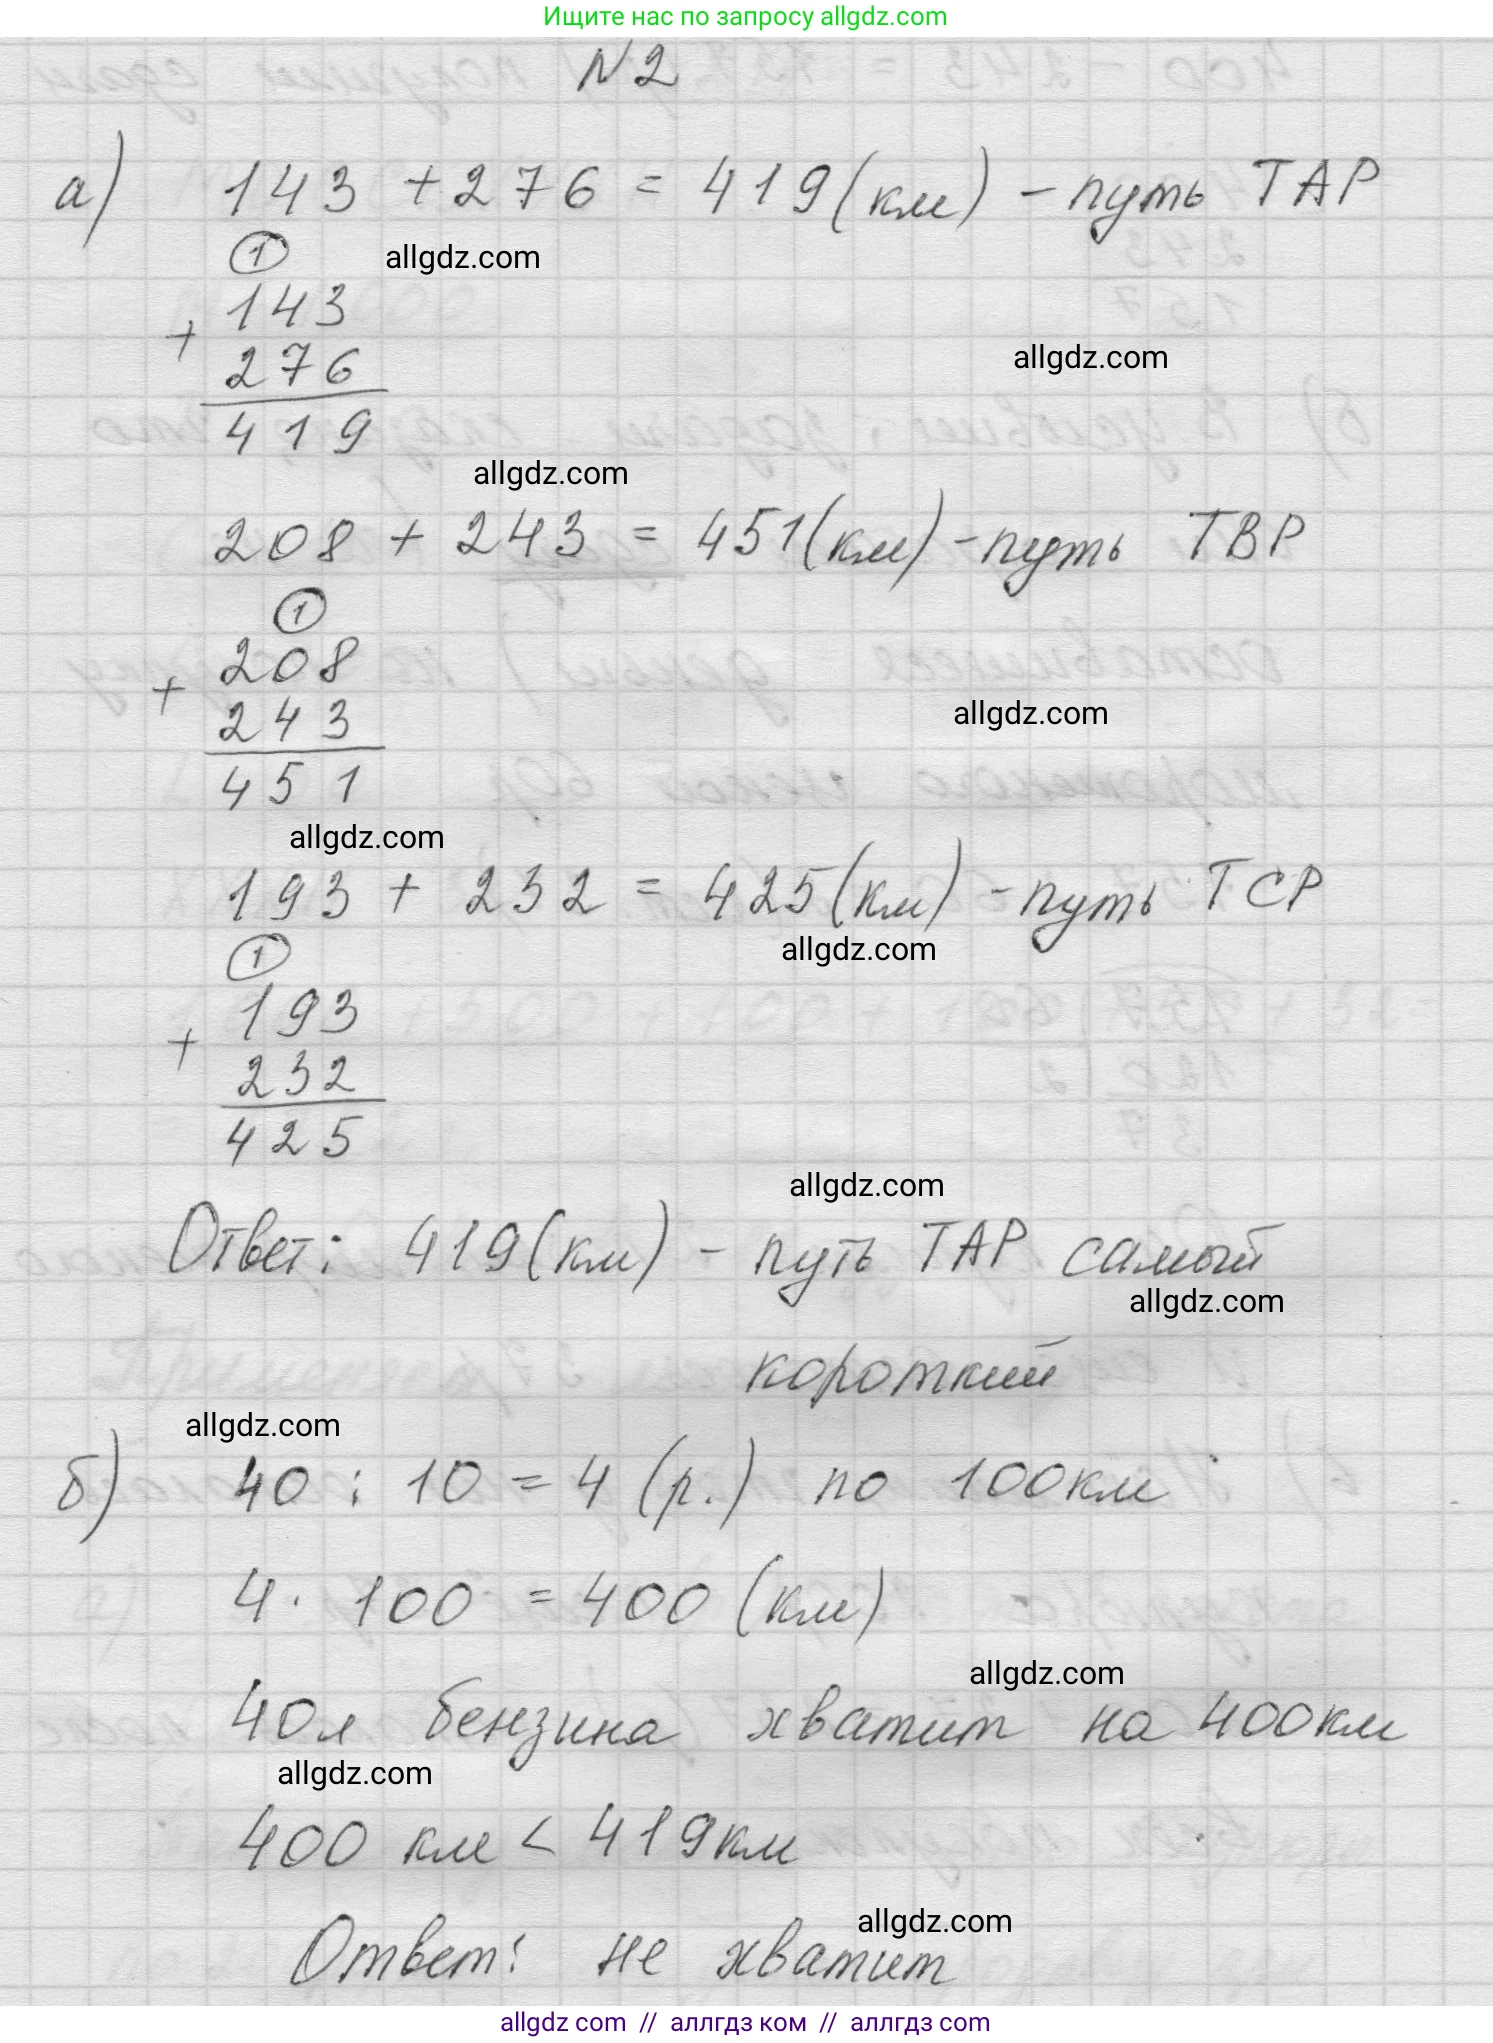 Ищите нас по запросу allgdz.com
N2
а) 143 + 276 = 419 (км) - путь ТАР
1
allgdz.com
143
allgdz.com
+
276
419
allgdz.com
208 + 243 = 451 (км) - путь ТВР
1
208
+
243
allgdz.com
451
allgdz.com
193 + 232 = 425 (км) - путь ТСР
1
allgdz.com
193
+
232
425
allgdz.com
Ответ: 419 (км) - путь ТАР самый
allgdz.com
короткий
allgdz.com
б) 40 : 10 = 4 (р.) по 100 км
4 · 100 = 400 (км)
allgdz.com
40л бензина хватит на 400 км
allgdz.com
400 км < 419 км
allgdz.com
Ответ: не хватит
allgdz com // аллгдз ком // аллгдз com